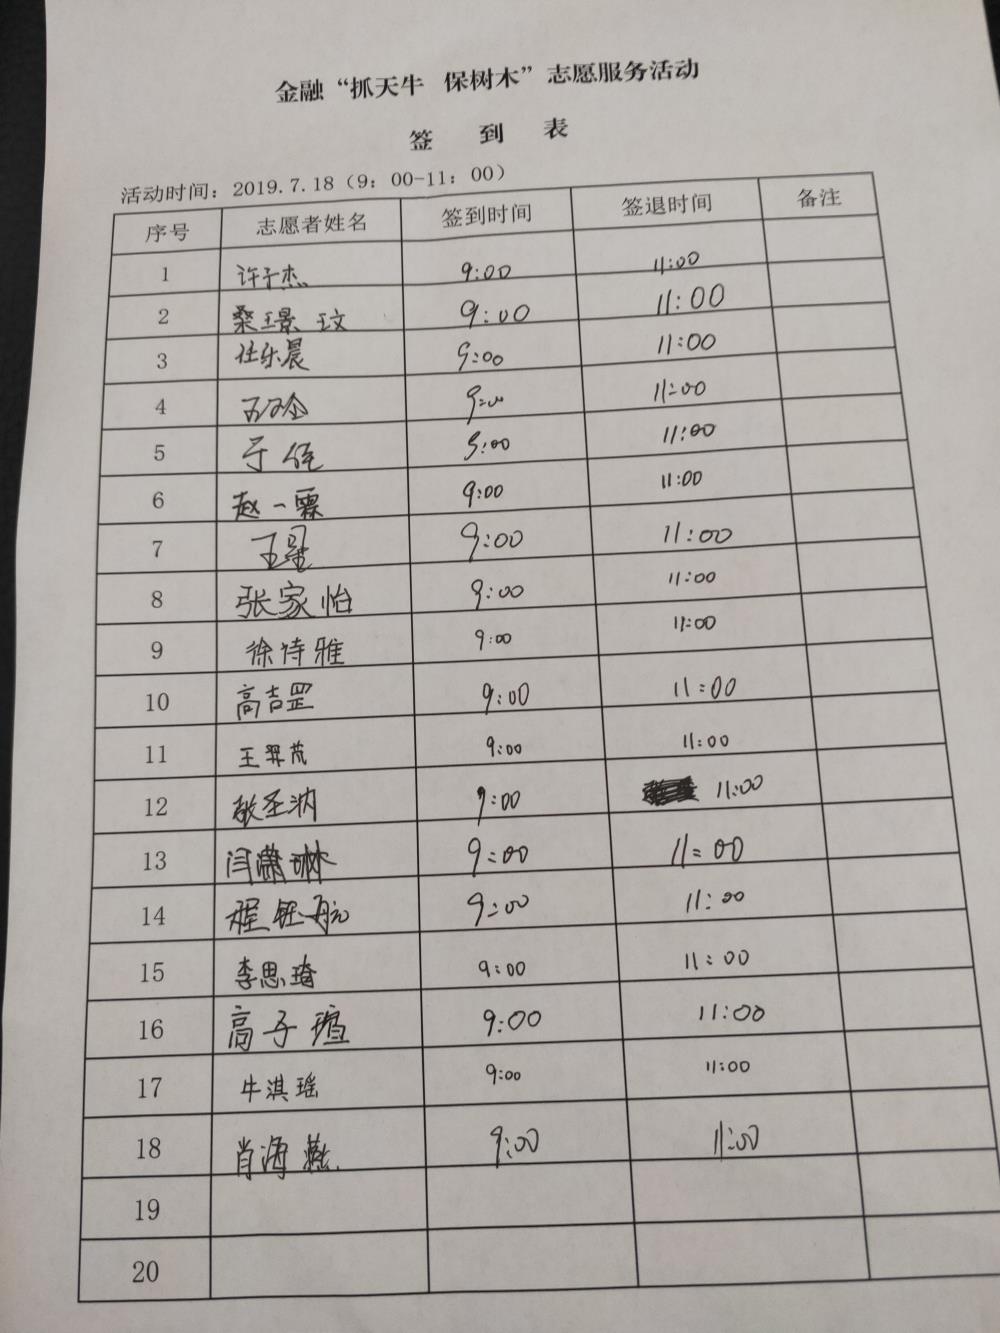 金融“抓天牛 保树木”志愿服务活动
签 到 表
活动时间：2019.7.18（9：00-11：00）
序号 志愿者姓名 签到时间 签退时间 备注
1 许于杰 9:00 11:00
2 桑璟玟 9:00 11:00
3 任乐晨 9:00 11:00
4 9:00 11:00
5 于侹 9:00 11:00
6 赵一霖 9:00 11:00
7 王星 9:00 11:00
8 张家怡 9:00 11:00
9 徐诗雅 9:00 11:00
10 高吉罡 9:00 11:00
11 王羿芃 9:00 11:00
12 9:00 11:00
13 闫潇琳 9:00 11:00
14 程钰航 9:00 11:00
15 李思琦 9:00 11:00
16 高子瑄 9:00 11:00
17 牛淇瑶 9:00 11:00
18 肖海燕 9:00 11:00
19
20